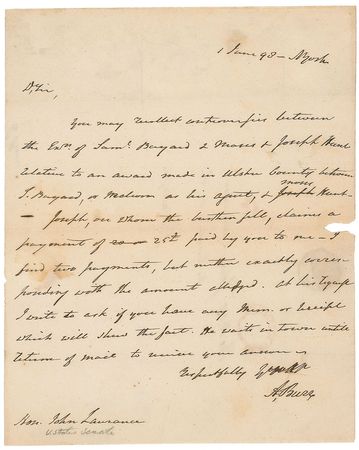 1 June 98 — NYork
D Sir,
You may recollect controversies between
the Exrs. of Saml. Bayard & Moses & Joseph Hunt
relative to an award made in Ulster County between
S. Bayard, or as his agent, & Moses Joseph Hunt —
— Joseph, on whom the burthen fell, claims a
payment of 25£ paid by you to me — I
find two payments, but neither exactly corres-
ponding with the amount alledged. At his request
I write to ask if you have any Mem. or receipt
which will shew the fact. He waits in town until
return of mail to receive your answer
respectfully Yours
A. Burr
Hon. John Laurance
U States Senate